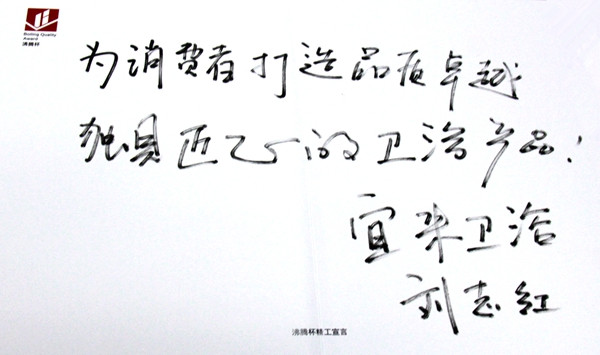 Boiling Quality
Award
沸腾杯
为消费者打造品质卓越
独具匠心的卫浴产品!
宜来卫浴
刘志红
沸腾杯精工宣言